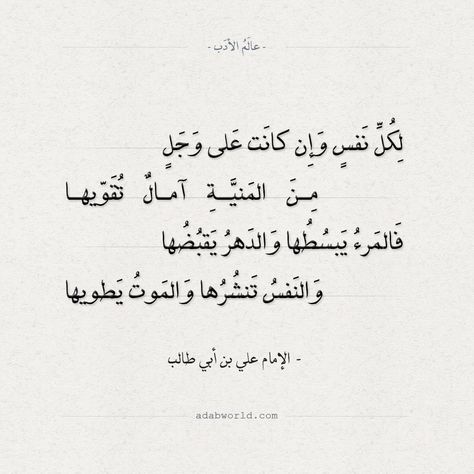 - عالَمُ الأدَب -
لِكُلِّ نَفسٍ وَإِن كانَت عَلى وَجَلٍ
مِنَ المَنيَّةِ آمالٌ تُقَوّيها
فَالمَرءُ يَبسُطُها وَالدَهرُ يَقبُضُها
وَالنَفسُ تَنشُرُها وَالمَوتُ يَطويها
- الإمام علي بن أبي طالب
adabworld.com